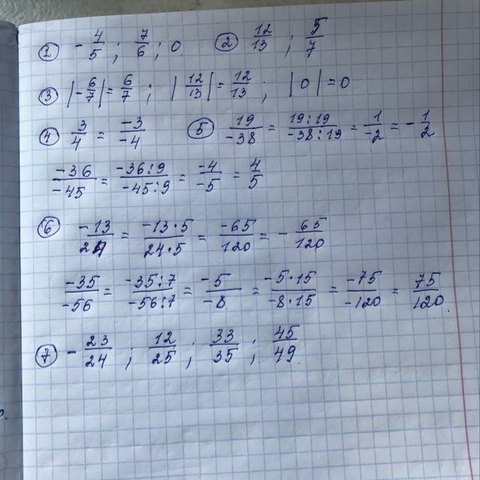 ① -4/5; 7/6; 0 ② 12/13; 5/7
③ |-6/7|=6/7; |12/13|=12/13; |0|=0
④ 3/4 = -3/-4 ⑤ 19/-38 = 19:19/-38:19 = 1/-2 = -1/2
-36/-45 = -36:9/-45:9 = -4/-5 = 4/5
⑥ -13/24 = -13·5/24·5 = -65/120 = -65/120
-35/-56 = -35:7/-56:7 = -5/-8 = -5·15/-8·15 = -75/-120 = 75/120.
⑦ -23/24; 12/25; 33/35; 45/49